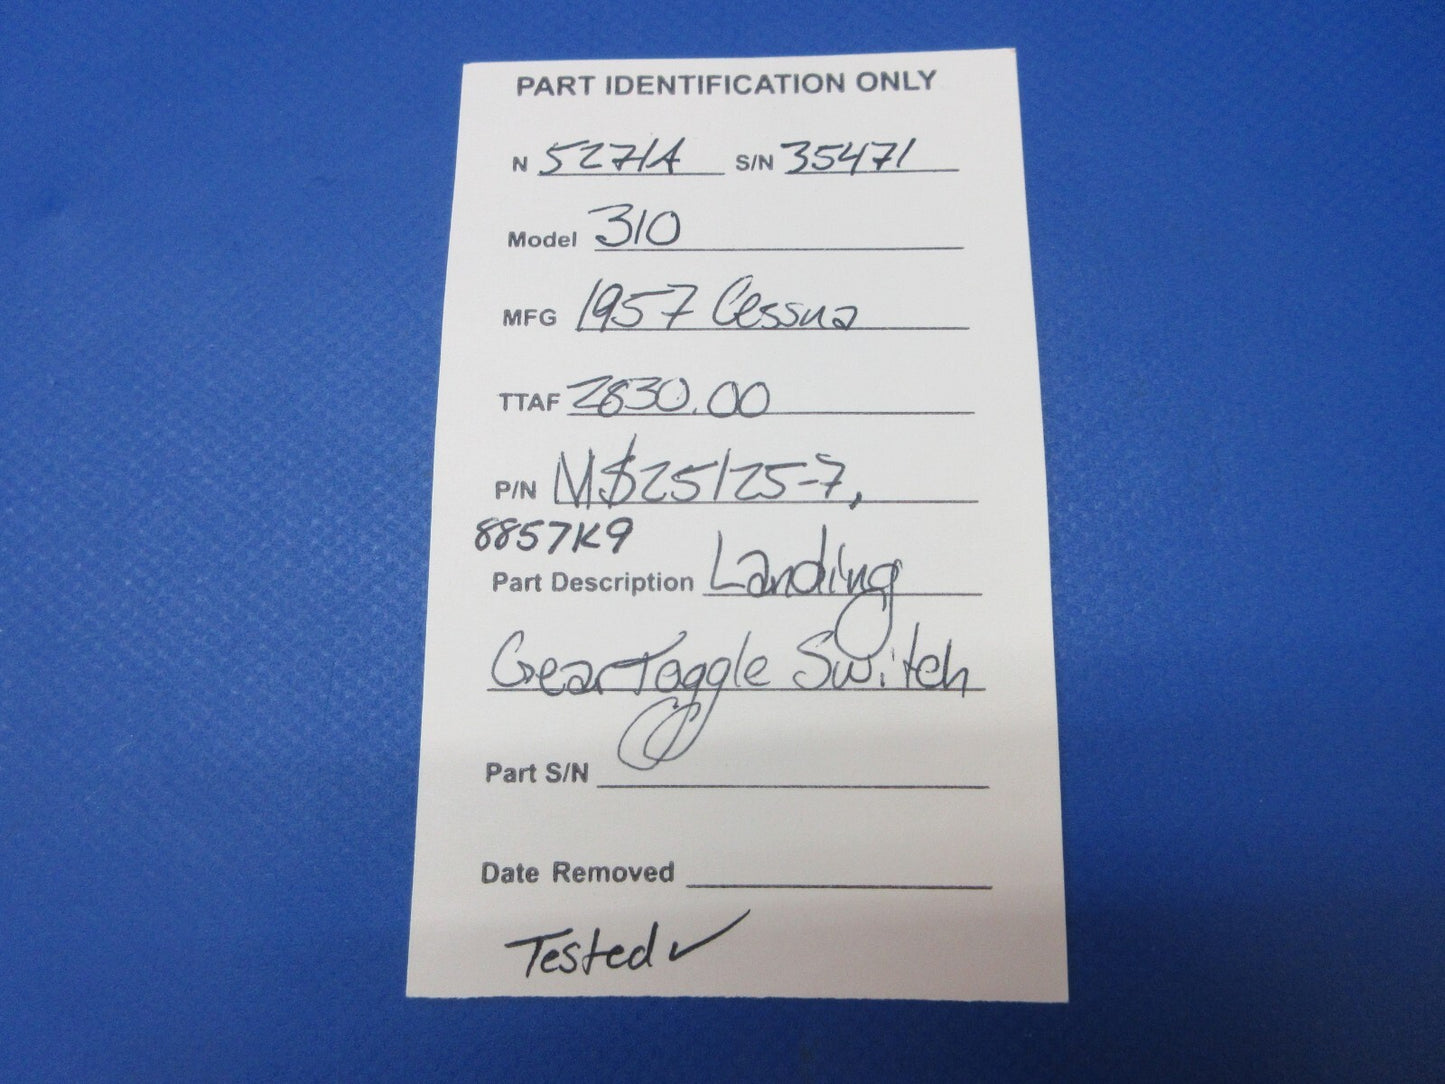 PART IDENTIFICATION ONLY
N 5271A S/N 35471
Model 310
MFG 1957 Cessna
TTAF 2830.00
P/N M$25125-7,
8857K9
Part Description Landing
Gear Toggle Switch
Part S/N
Date Removed
Tested ✓